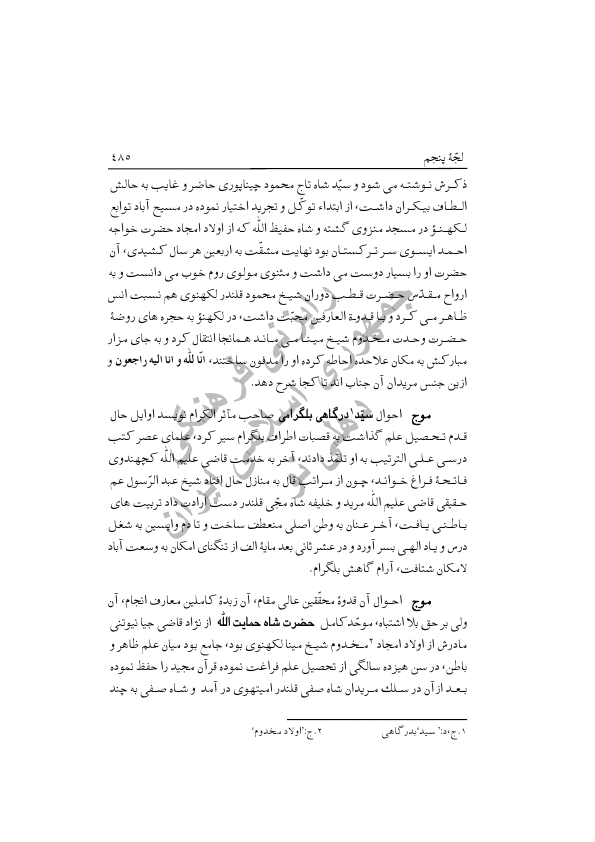 لجّهٔ پنجم ٤٨٥
ذکرش نوشته می شود و سیّد شاه تاج محمود چیناپوری حاضر و غایب به حالش
الطاف بیکران داشت، از ابتداء توکّل و تجرید اختیار نموده در مسیح آباد توابع
لکهنؤ در مسجد منزوی گشته و شاه حفیظ الله که از اولاد امجاد حضرت خواجه
احمد ایسوی سر ترکستان بود نهایت مشقّت به اربعین هر سال کشیدی، آن
حضرت او را بسیار دوست می داشت و مثنوی مولوی روم خوب می دانست و به
ارواح مقدّس حضرت قطب دوران شیخ محمود قلندر لکهنوی هم نسبت انس
ظاهر می کرد و با قدوة العارفین محبّت داشت، در لکهنؤ به حجره های روضهٔ
حضرت وحدت مخدوم شیخ مینا می ماند همانجا انتقال کرد و به جای مزار
مبارکش به مکان علاحده احاطه کرده او را مدفون ساختند، انّا لله و انا الیه راجعون و
ازین جنس مریدان آن جناب اند تا کجا شرح دهد.
موج احوال سیّد ١درگاهی بلگرامی صاحب مآثر الکرام نویسد اوایل حال
قدم تحصیل علم گذاشت به قصبات اطراف بلگرام سیر کرد، علمای عصر کتب
درسی علی الترتیب به او تلمّذ دادند، آخر به خدمت قاضی علیم الله کچهندوی
فاتحهٔ فراغ خواند، چون از مراتب قال به منازل حال افتاد شیخ عبد الرّسول عم
حقیقی قاضی علیم الله مرید و خلیفه شاه مجّی قلندر دست ارادت داد تربیت های
باطنی یافت، آخر عنان به وطن اصلی منعطف ساخت و تا دم واپسین به شغل
درس و یاد الهی بسر آورد و در عشر ثانی بعد مایهٔ الف از تنگنای امکان به وسعت آباد
لامکان شتافت، آرام گاهش بلگرام.
موج احوال آن قدوهٔ محقّقین عالی مقام، آن زبدهٔ کاملین معارف انجام، آن
ولی بر حق بلا اشتباه، موحّد کامل حضرت شاه حمایت الله از نژاد قاضی جیا نیوتنی
مادرش از اولاد امجاد ٢مخدوم شیخ مینا لکهنوی بود، جامع بود میان علم ظاهر و
باطن، در سن هیزده سالگی از تحصیل علم فراغت نموده قرآن مجید را حفظ نموده
بعد از آن در سلك مریدان شاه صفی قلندر امیتهوی در آمد و شاه صفی به چند
١.ج،د:’ سید‘بدرگاهی ٢.ج:’اولاد مخدوم‘
رایزنی فرهنگی
جمهوری اسلامی ایران
دهلی نو